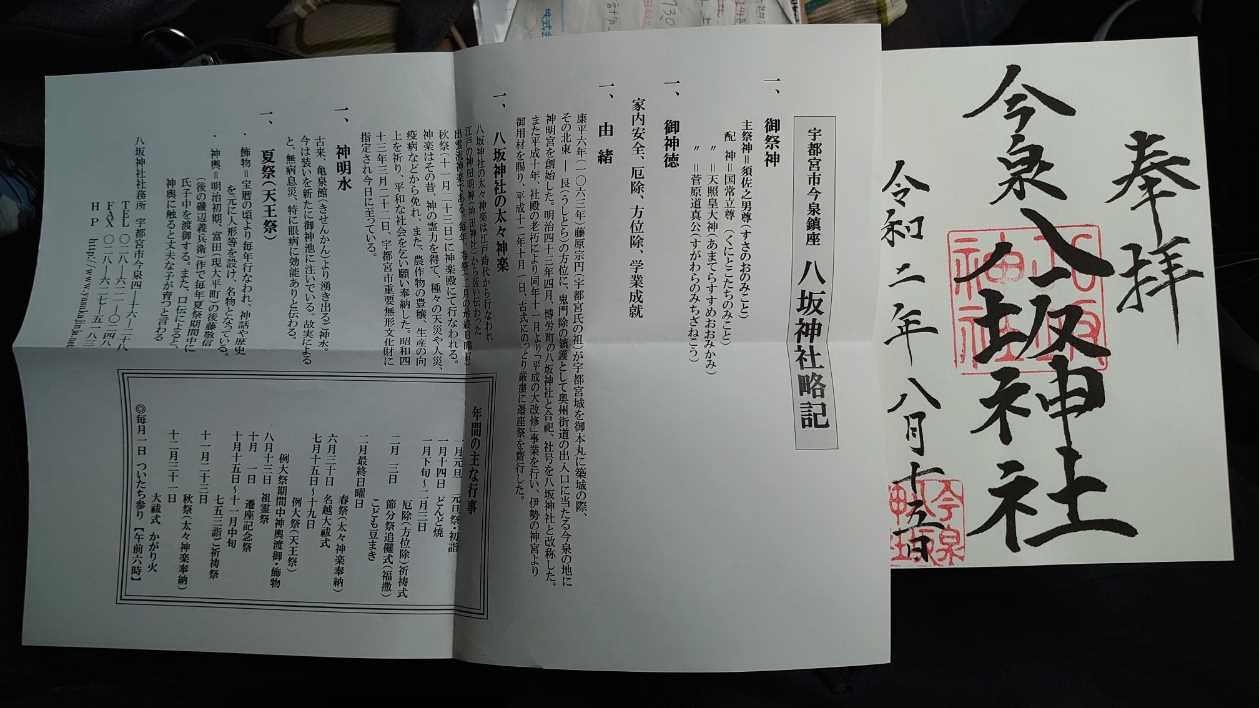 奉拝
今泉八坂神社
令和二年八月十五日
八坂
神社
今泉
宇都宮市今泉鎮座 八坂神社略記
一、 御祭神
主祭神＝須佐之男尊(すさのおのみこと)
配 神＝国常立尊 (くにとこたちのみこと)
〃 ＝天照皇大神(あまてらすすめおおみかみ)
〃 ＝菅原道真公(すがわらのみちざねこう)
一、 御神徳
家内安全、厄除、方位除、学業成就
一、 由 緒
康平六年(一〇六三年)藤原宗円(宇都宮氏の祖)が宇都宮城を御本丸に築城の際、
その北東―艮(うしとら)の方位に、鬼門除の鎮護として奥州街道の出入口に当たる今泉の地に
神明宮を創始した。明治四十三年四月、博労町の八坂神社と合祀、社号を八坂神社と改称した。
また平成十年、社殿の老朽により同年十二月より「平成の大改修」事業を行い、伊勢の神宮より
御用材を賜り、平成十二年十月一日、古式にのっとり厳粛に遷座祭を斎行した。
一、 八坂神社の太々神楽
八坂神社の太々神楽は江戸時代から行なわれ
秋祭(十一月二十三日)に神楽殿にて行なわれる。
神楽はその昔、神の霊力を得て、種々の天災や人災、
疫病などから免れ、また、農作物の豊穣、生産の向
上を祈り、平和な社会を乞い願い奉納した。昭和四
十三年三月二十二日、宇都宮市重要無形文化財に
指定され今日に至っている。
一、 神明水
古来、亀泉館(きせんかん)より湧き出る「神水」。
今は装いを新たに御神池に注いでいる。故実による
と、無病息災、特に眼病に効能ありと伝わる。
一、 夏祭(天王祭)
・飾物＝宝暦の頃より毎年行なわれ、神話や歴史
を元に人形等を設け、名物となっている。
・神輿＝明治初期、富田(現大平町)の後藤祭信
(後の磯辺義兵衛)作で毎年夏祭期間中に
氏子中を渡御する。また、口伝によると、
神輿に触ると丈夫な子が育つと言わる
八坂神社社務所 宇都宮市今泉四―十六―二十八
TEL 〇二八―六二一―〇二四八
FAX 〇二八―六二七―五一八三
年間の主な行事
一月元旦 元旦祭・初詣
一月十四日 どんど焼
一月下旬～二月三日
厄除(方位除)祈祷式
二月 三日 節分祭追儺式(福撒)
こども豆まき
二月最終日曜日
春祭(太々神楽奉納)
六月三十日 名越大祓式
七月十五日～十九日
例大祭(天王祭)
例大祭期間中神輿渡御・飾物
八月十三日 祖霊祭
十月 一日 遷座記念祭
十月十五日～十一月中旬
七五三詣ご祈祷祭
十一月二十三日
秋祭(太々神楽奉納)
十二月三十一日
大祓式 かがり火
◎毎月一日 ついたち参り【午前六時】